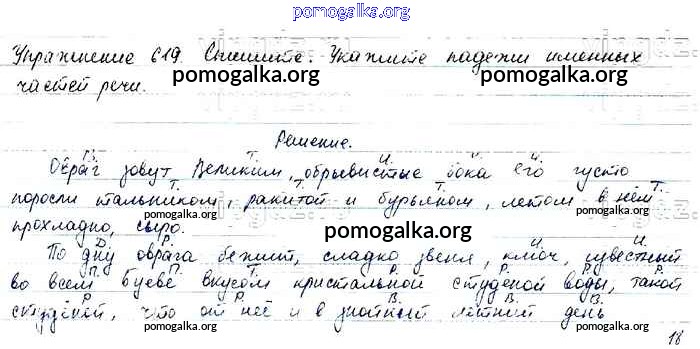 pomogalka.org
Упражнение 619. Спишите. Укажите падежи именных
pomogalka.org pomogalka.org
частей речи.
Решение.
Овраг зовут Великим, обрывистые бока его густо
pomogalka.org pomogalka.org
поросли тальником, ракитой и бурьяном, летом в нём
pomogalka.org
прохладно, сыро.
По дну оврага бежит, сладко звеня, ключ, известный
pomogalka.org
во всем Буеве вкусом кристальной студеной воды, такой
студеной, что от неё и в знойный летний день
pomogalka.org pomogalka.org
18